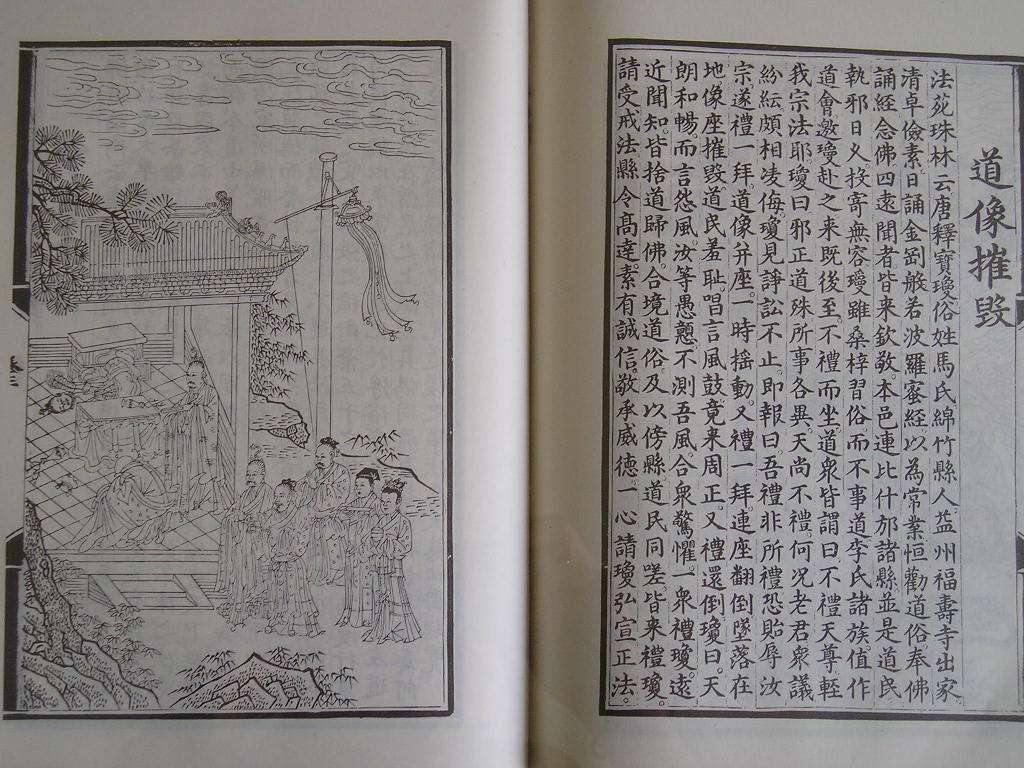 道像摧毀
法苑珠林云唐釋寶瓊俗姓馬氏綿竹縣人益州福壽寺出家
清卓儉素。日誦金剛般若波羅蜜經以為常業恒勸道俗奉佛
誦經念佛四遠聞者皆來欽敬本邑連比什邡諸縣並是道民
執邪日久投寄無容瓊雖桑梓習俗而不事道李氏諸族值作
道會邀瓊赴之來既後至不禮而坐道衆皆謂曰不禮天尊輕
我宗法耶。瓊曰邪正道殊所事各異天尚不禮。何況老君衆議
紛紜頗相凌侮瓊見諍訟不止。即報曰吾禮非所禮恐貽辱汝
宗遂禮一拜。道像并座。一時揺動。又禮一拜。連座翻倒墜落在
地像座摧毀道民羞耻。唱言風鼓。竟來周正。又禮還倒。瓊曰。天
朗和暢。而言怨風。汝等愚戇。不測吾風。合衆驚懼。一衆禮瓊。遠
近聞知。皆捨道歸佛。合境道俗及以傍縣道民同嗟。皆來禮瓊。
請受戒法縣令高達。素有誠信。敬承威德。一心請瓊弘宣正法。